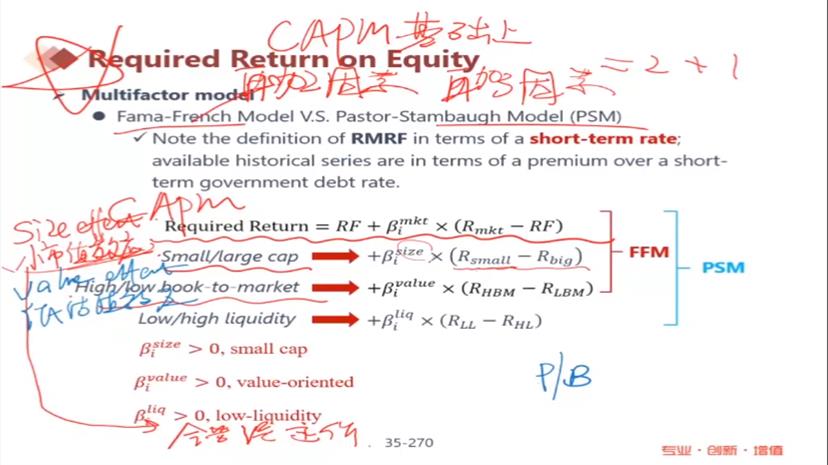 CAPM 基础上
Required Return on Equity
再加2因素 再加3因素 = 2 + 1
Multifactor model
Fama-French Model V.S. Pastor-Stambaugh Model (PSM)
✓ Note the definition of RMRF in terms of a short-term rate;
available historical series are in terms of a premium over a short-
term government debt rate.
CAPM
Size effect
小市值效应
Required Return = RF + β_i^mkt × (R_mkt − RF)
Small/large cap + β_i^size × (R_small − R_big)
FFM
PSM
Value effect
High/low book-to-market + β_i^value × (R_HBM − R_LBM)
Low/high liquidity + β_i^liq × (R_LL − R_HL)
β_i^size > 0, small cap
β_i^value > 0, value-oriented
P/B
β_i^liq > 0, low-liquidity
35-270
专业·创新·增值